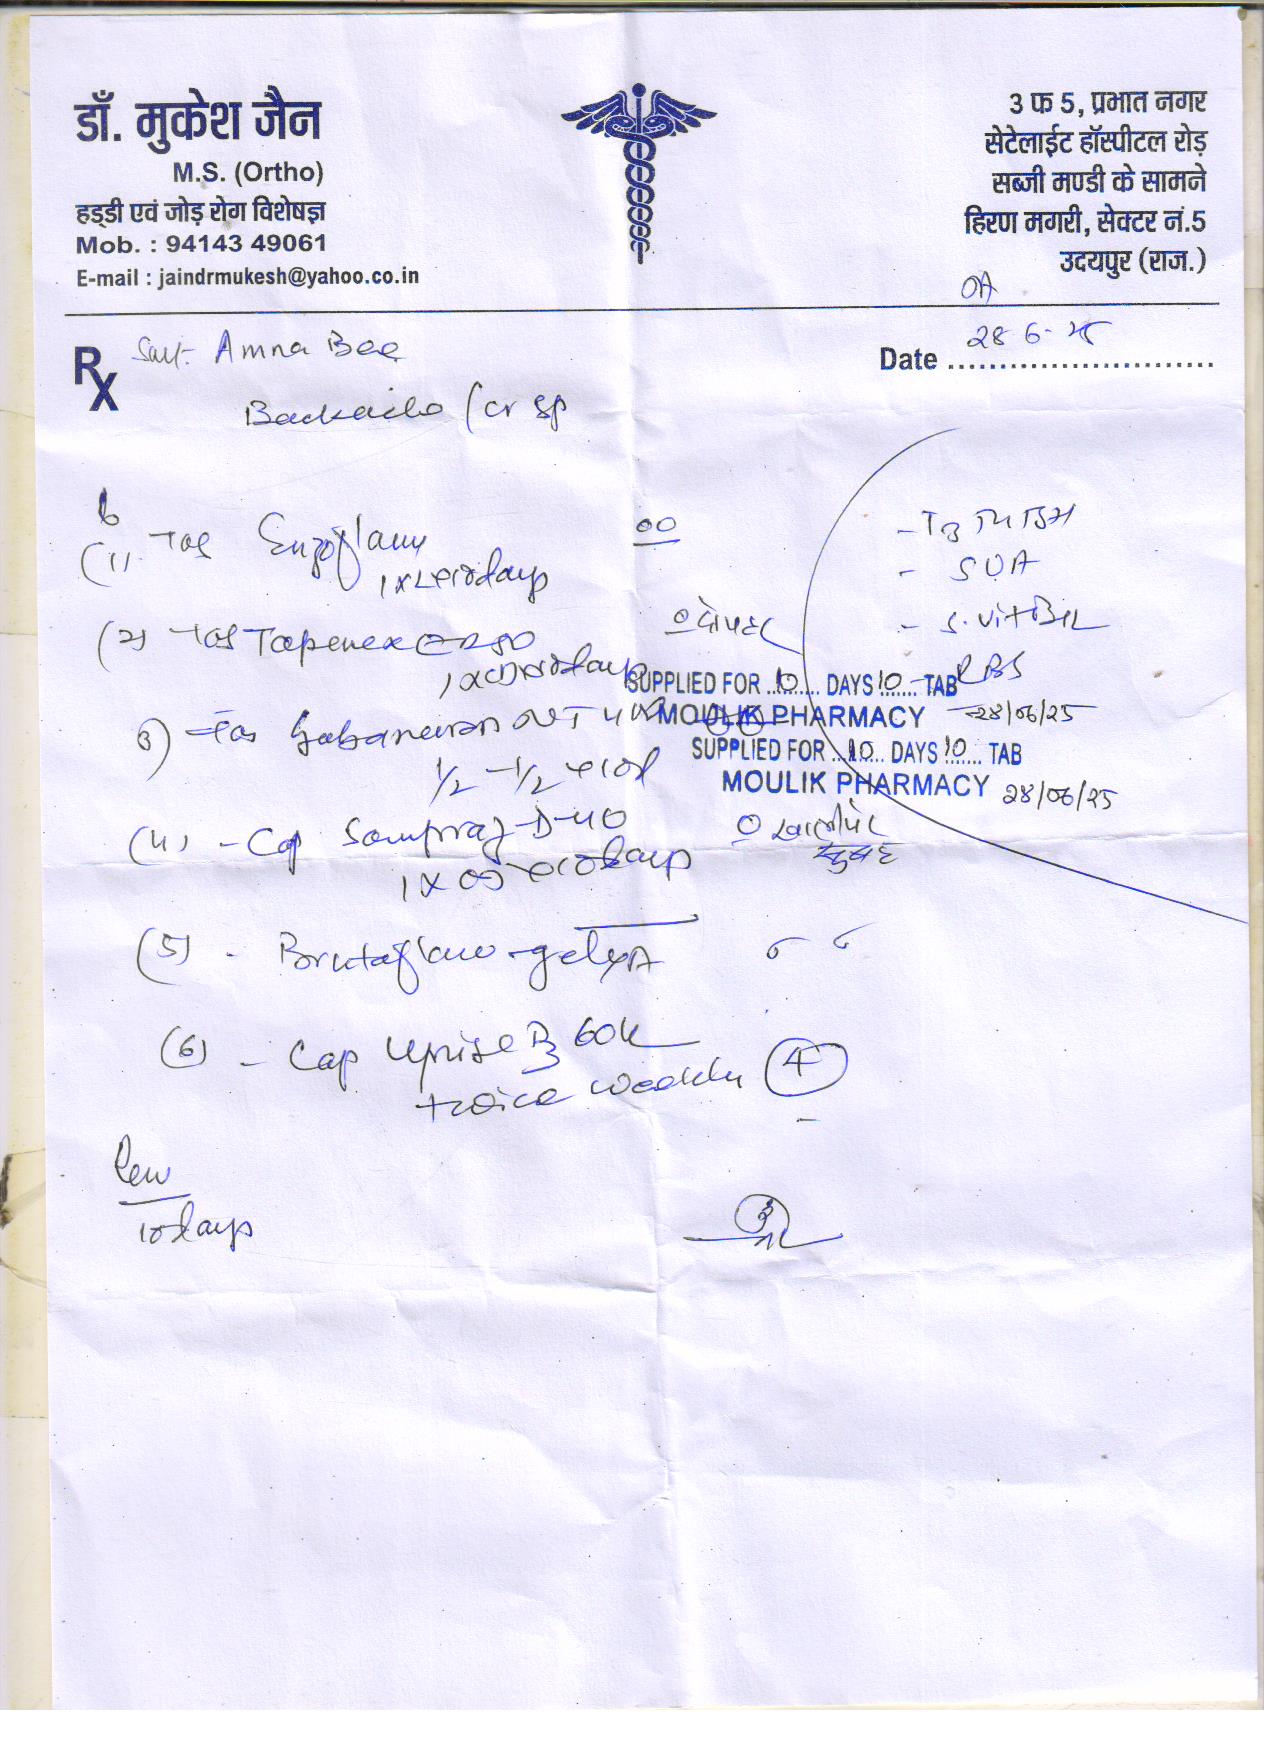 डॉ. मुकेश जैन
M.S. (Ortho)
हड्डी एवं जोड़ रोग विशेषज्ञ
Mob. : 94143 49061
E-mail : jaindrmukesh@yahoo.co.in
3 फ 5, प्रभात नगर
सेटेलाईट हॉस्पीटल रोड़
सब्जी मण्डी के सामने
हिरण मगरी, सेक्टर नं.5
उदयपुर (राज.)
OA
Rx Smt. Amna Bee
Date 28-6-25
Backache / cr sp
(1). Tab Enzoflam
1x2x10days
(2) Tab Tapenex
दोपहर
3) Tab Gabaneuron NT 400
1/2 - 1/2 x10d
(4) - Cap Sompraz-D-40
1x x10days
खालीपेट
सुबह
(5) - Brutaflam-gel
(6) - Cap Uprise D3 60K
twice weekly (4)
Rev
10days
- S.UA
- S.vitB12
RBS
SUPPLIED FOR 10 DAYS 10 TAB
MOULIK PHARMACY 28/06/25
SUPPLIED FOR 10 DAYS 10 TAB
MOULIK PHARMACY 28/06/25